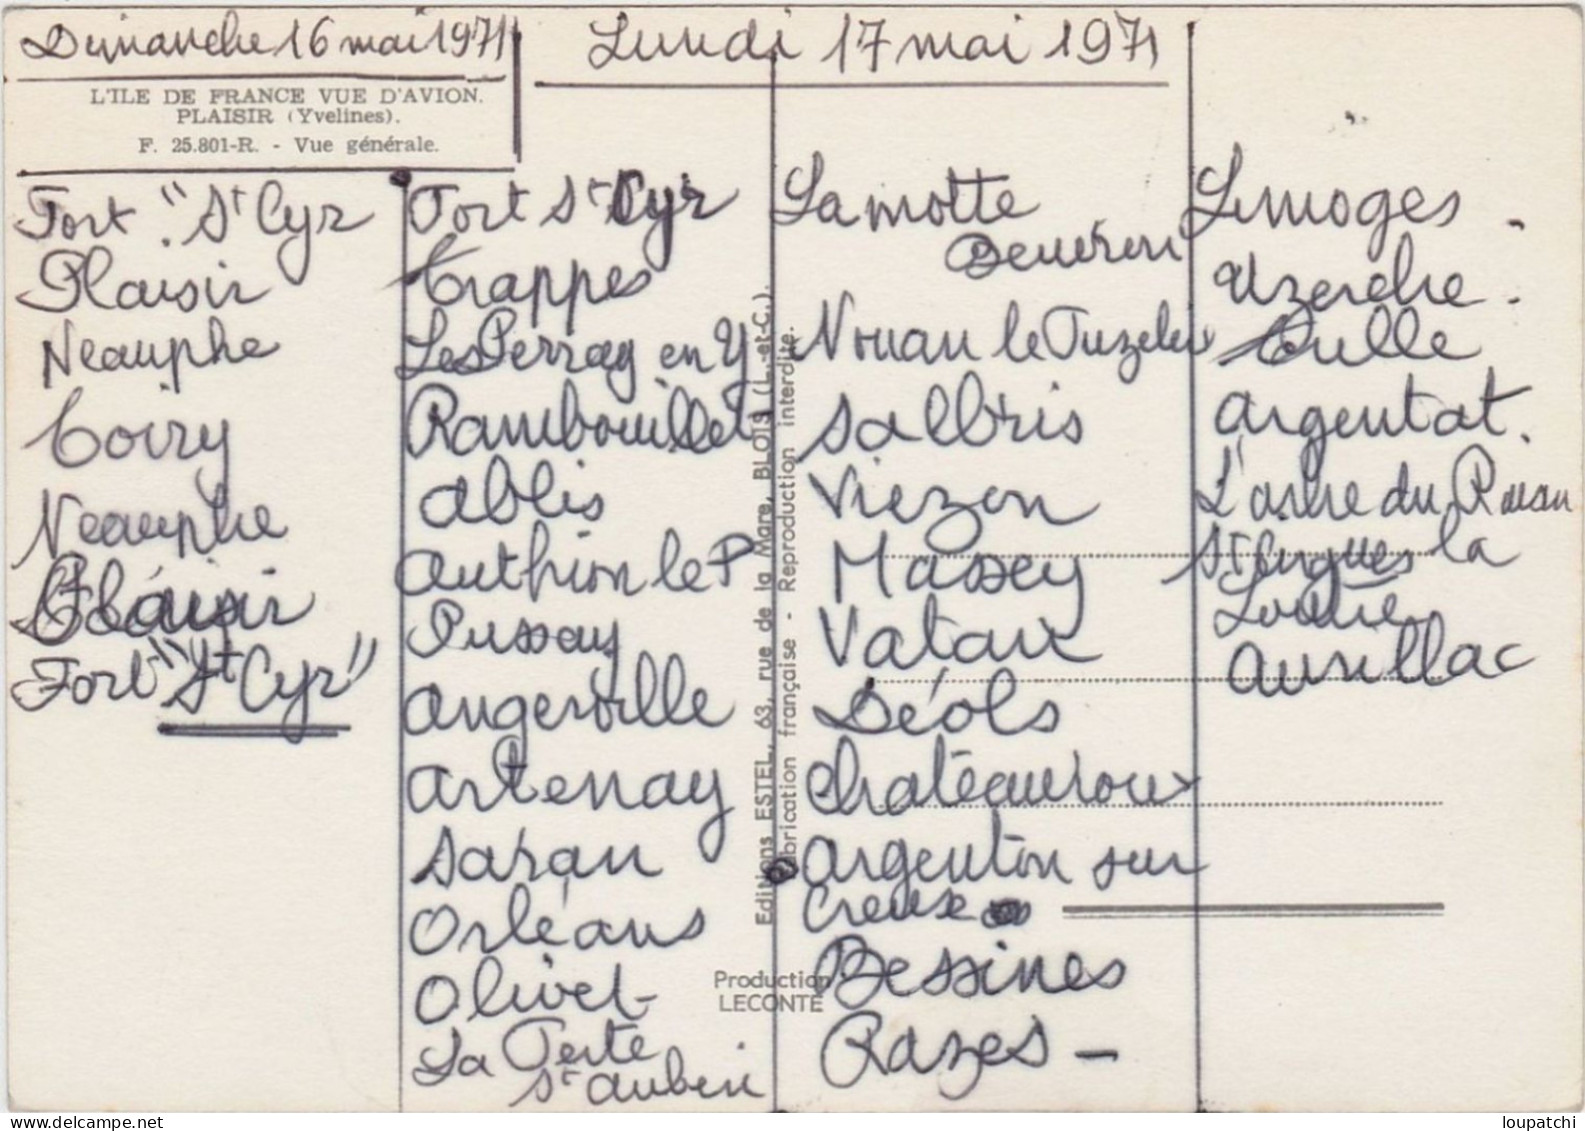 Dimanche 16 mai 1971
L'ILE DE FRANCE VUE D'AVION.
PLAISIR (Yvelines).
F. 25.801-R. - Vue générale.
Fort "St Cyr
Plaisir
Neauphe
Thoiry
Neauphe
Plaisir
Fort "St Cyr"
Lundi 17 mai 1971
Fort St Cyr
Trappes
Les Perray en Y
Rambouillet
Ablis
Authion le P
Pussay
Angerville
Artenay
Saran
Orléans
Olivet
La Ferte
St Aubin
Lamotte
Beuvron
Nouan le Fuzelier
Salbris
Vierzon
Massey
Vatan
Déols
Chateauroux
Argenton sur
Creuse
Bessines
Razes -
Limoges -
Uzerche -
Tulle
Argentat.
L'arbre du Rouan
St Cirgues la
Loutre
Aurillac
Editions ESTEL, 63, rue de la Mare, BLOIS (L.-et-C.).
Fabrication française - Reproduction interdite.
Production
LECONTE
www.delcampe.net
loupatchi